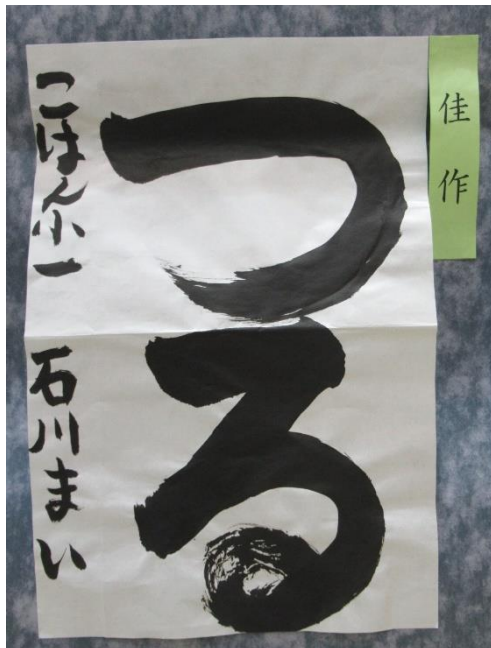 佳作
つる
こはん小一 石川まい